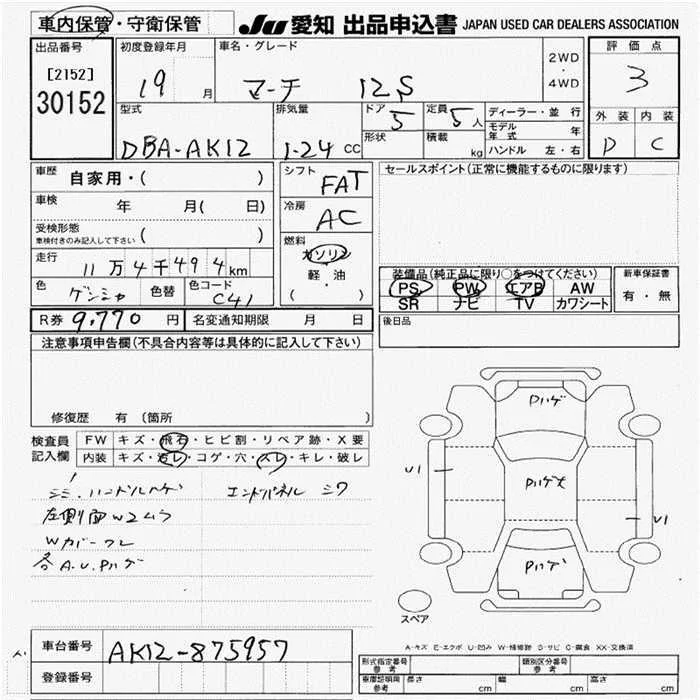 車内保管・守衛保管 JU 愛知 出品申込書 JAPAN USED CAR DEALERS ASSOCIATION
出品番号 初度登録年月 車名・グレード 2WD・4WD 評価点
[2152] 19 月 マーチ 12S 3
30152
型式 排気量 ドア 定員 ディーラー・並行 外装 内装
DBA-AK12 1-24 CC 5 5人 モデル年式 年 D C
形状 積載 kg ハンドル 左・右
車歴 自家用・( ) シフト FAT セールスポイント(正常に機能するものに限ります)
車検 年 月( 日) 冷房 AC
受検形態 ( )
車検付きのみ記入して下さい
燃料 ガソリン
軽・油
( )
走行 11万4千494km
装備品(純正品に限り○をつけてください) 新車保証書
PS PW エアB AW 有・無
SR ナビ TV カワシート
色 ゲンシャ 色替 色コード C41
R券 9,770円 名変通知期限 月 日 後日品
注意事項申告欄(不具合内容等は具体的に記入して下さい)
修復歴 有 (箇所
検査員記入欄 FW キズ・飛石・ヒビ割・リペア跡・X要
内装 キズ・汚レ・コゲ・穴・スレ・キレ・破レ
シミ.ハンドルハゲ エンドパネル シワ
左側面W2ムラ
Wカバーワレ
各A.U.Pハゲ
Pハゲ
U1 Pハゲ U1
Pハゲ
スペア
A-キズ E-エクボ U-凹み W-補修跡 S-サビ C-腐食 XX-交換済
車台番号 AK12-875957
登録番号
形式指定番号 参考 類別区分番号 参考
車庫証明用 参考 長さ cm 幅 cm 高さ cm